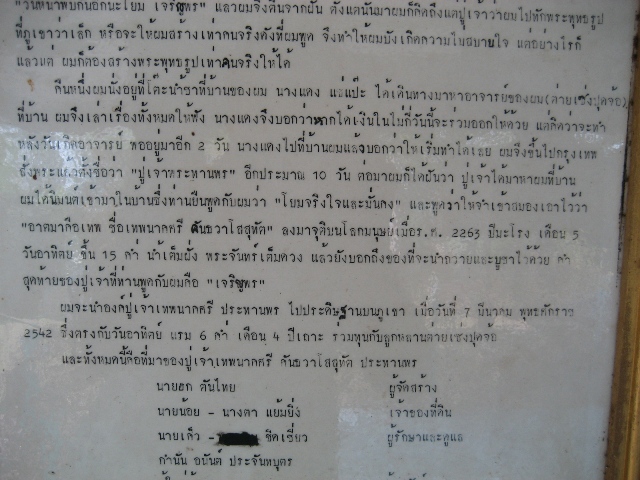 "วันหน้าพบกันอีกนะโยม เจริญพร" แล้วผมจึงตื่นจากฝัน ตั้งแต่นั้นมาผมก็คิดถึงแต่ปู่เจ้าว่าผมไปทักพระพุทธรูป
ที่ภูเขาว่าเล็ก หรือจะให้ผมสร้างเท่าคนจริงดังที่ผมพูด จึงทำให้ผมบังเกิดความไม่สบายใจ แต่อย่างไรก็
แล้วแต่ ผมก็ต้องสร้างพระพุทธรูปเท่าคนจริงให้ได้
คืนหนึ่งผมนั่งอยู่ที่โต๊ะน้ำชาที่บ้านของผม นางแดง แซ่แป๊ะ ได้เดินทางมาหาอาจารย์ของผม(ต่ายเซ่งปุดจ้อ)
ที่บ้าน ผมจึงเล่าเรื่องทั้งหมดให้ฟัง นางแดงจึงบอกว่าหากได้เงินในไม่กี่วันนี้จะร่วมออกให้ด้วย แต่คิดว่าจะทำ
หลังวันเกิดอาจารย์ พออยู่มาอีก 2 วัน นางแดงไปที่บ้านผมแล้วบอกว่าให้เริ่มทำได้เลย ผมจึงขึ้นไปกรุงเทพ
สั่งพระแล้วตั้งชื่อว่า "ปู่เจ้าพระทานพร" อีกประมาณ 10 วัน ต่อมาผมก็ได้ฝันว่า ปู่เจ้าได้มาหาผมที่บ้าน
ผมได้นิมนต์เข้ามาในบ้านซึ่งท่านยืนพูดกับผมว่า "โยมจริงใจและมั่นคง" และพูดว่าให้จำเข้าสมองเอาไว้ว่า
"อาตมาคือเทพ ชื่อเทพนาคศรี คันธวาโสสุทัต" ลงมาจุติบนโลกมนุษย์เมื่อร.ศ. 2263 ปีมะโรง เดือน 5
วันอาทิตย์ ขึ้น 15 ค่ำ น้ำเต็มฝั่ง พระจันทร์เต็มดวง แล้วยังบอกถึงของที่จะนำถวายและบูชาไว้ด้วย คำ
สุดท้ายของปู่เจ้าที่ท่านพูดกับผมคือ "เจริญพร"
ผมจะนำองค์ปู่เจ้าเทพนาคศรี ประทานพร ไปประดิษฐานบนภูเขา เมื่อวันที่ 7 มีนาคม พุทธศักราช
2542 ซึ่งตรงกับวันอาทิตย์ แรม 6 ค่ำ เดือน 4 ปีเถาะ ร่วมทุนกับลูกหลานต่ายเซ่งปุดจ้อ
และทั้งหมดนี้คือที่มาของปู่เจ้าเทพนาคศรี คันธวาโสสุทัต ประทานพร
นายเอก ตันไทย ผู้จัดสร้าง
นายน้อย - นางตา แย้มยิ่ง เจ้าของที่ดิน
นายเล็ว - ชิดเชี่ยว ผู้รักษาและดูแล
กำนัน อนันต์ ประจันทบุตร